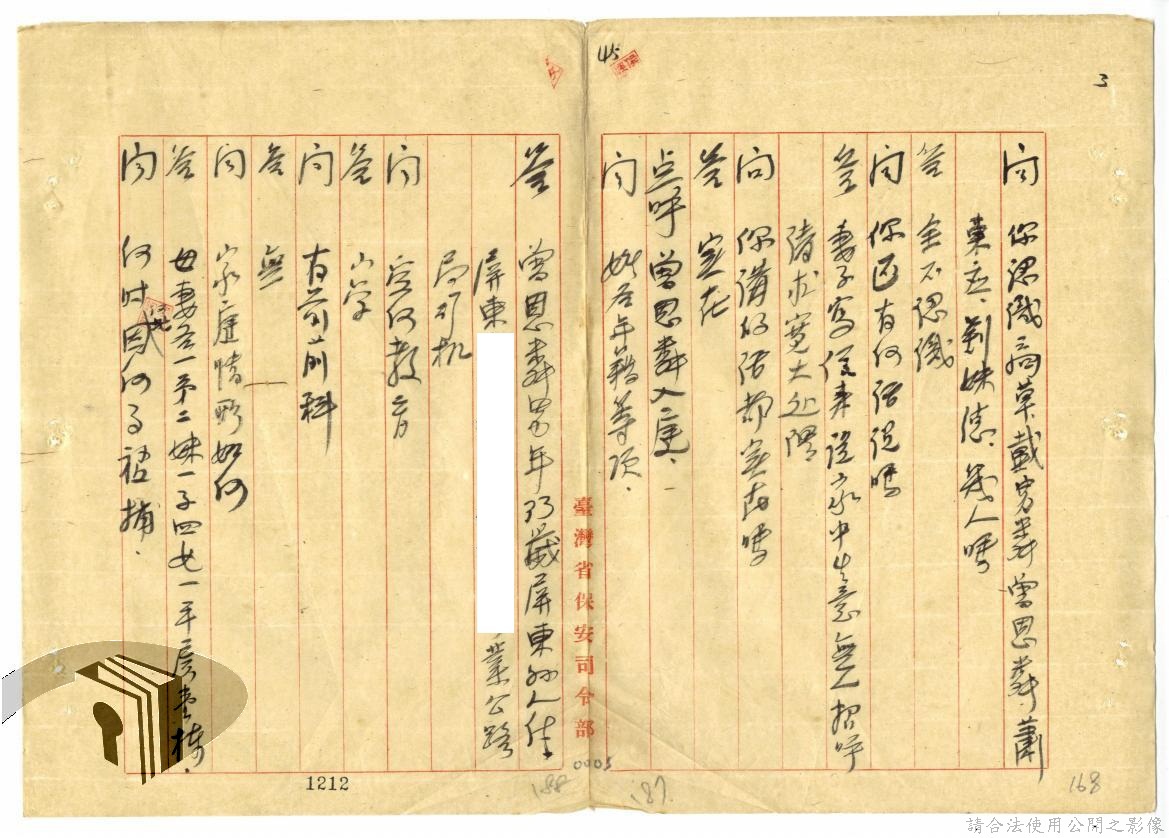 45
3
問 你認識 草戴 曾恩 蕭
東 、劉妹 、 人嗎
答 全不認識
問 你 有何話說嗎
答 妻子寫信來說家中生意無人招呼
請求寬大處
問 你講的話都實在嗎
答 實在
点呼 曾恩 入庭
問 姓名年籍等項
臺灣省保安司令部
答 曾恩 男年 歲屏東 人住
屏東 業公路
局司机
問 受何教育
答 小学
問 有前科
答 無
問 家庭情形如何
答 母妻 一弟二妹一子四女一平房壹棟
問 何時 因何 被捕
0005
1212
188
187
168
請合法使用公開之影像